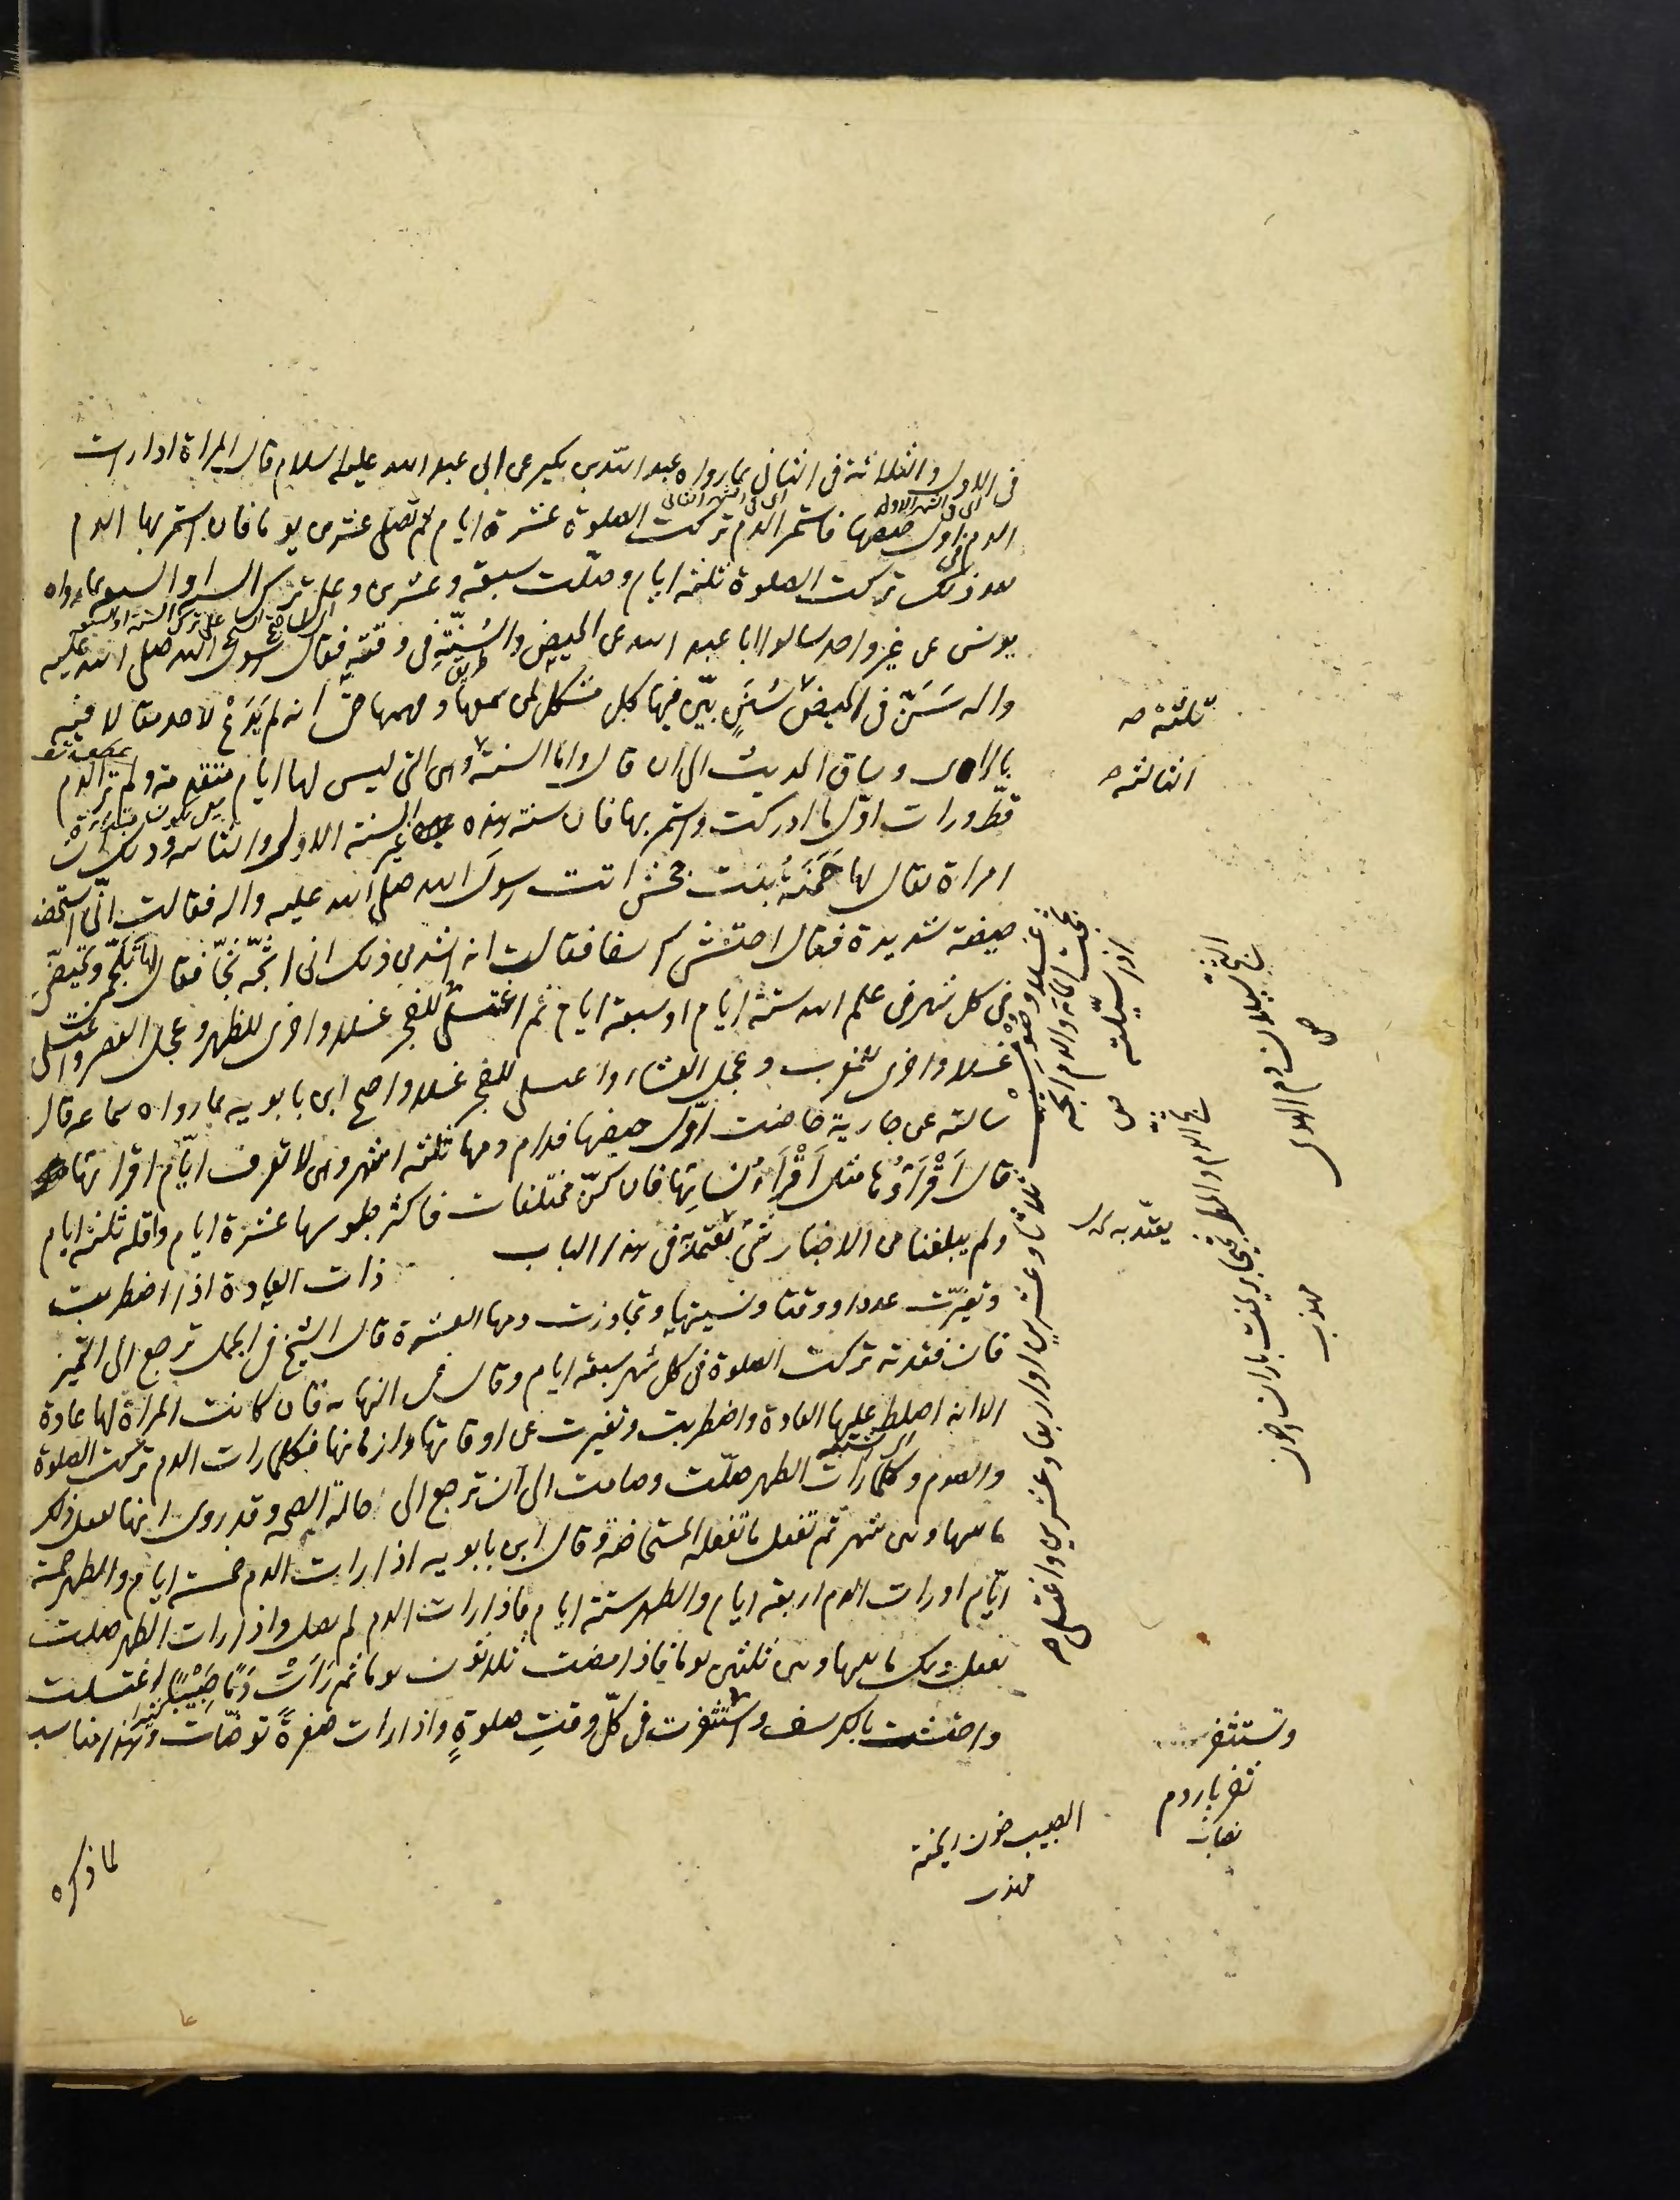 فى الاول والثلاثة فى الثانى بما رواه عبد الله بن بكير عن ابى عبد الله عليه السلام قال المراة اذا رات
اى فى الشهر الاول
اى فى الشهر الثانى
الدم فى اول حيضها فاستمر الدم تركت الصلوة عشرة ايام ثم تصلى عشرين يوما فان استمر بها الدم
بعد ذلك تركت الصلوة ثلثة ايام وصلت سبعة وعشرين وعلى ترك الستة او السبعة بما رواه
يونس عن غير واحد سالوا ابا عبد الله عن الحيض والسنة فى وقته فقال رسول الله صلى الله عليه
واله سن فى الحيض سنن بين فيها كل مشكل لمن سمعها وفهمها حتى انه لم يدع لاحد مقالا فيه
ثلثة صح
بالراى وساق الحديث الى ان قال واما السنة وهى التى ليس لها ايام متقدمة ولم تر الدم
الثالثة صح
قط ورات اول ما ادركت واستمر بها فان سنة هذه غير السنة الاولى والثانية وذلك ان
امراة يقال لها حمنة بنت جحش اتت رسول الله صلى الله عليه واله فقالت انى استحضت
حيضة شديدة فقال احتشى كرسفا فقالت انه اشد من ذلك انى اثجه ثجا فقال لها تلجمى وتحيضى
فى كل شهر فى علم الله ستة ايام او سبعة ايام ثم اغتسلى للفجر غسلا واخرى للظهر وعجل العصر واغتسلى
غسلا واخرى للمغرب وعجل العشاء واغتسلى للفجر غسلا واحتج ابن بابويه بما رواه سماعة قال
سالته عن جارية حاضت اول حيضها فدام دمها ثلثة اشهر وهى لا تعرف ايام اقرائها
قال اقراؤها مثل اقراء نسائها فان كن مختلفات فاكثر جلوسها عشرة ايام واقله ثلثة ايام
ولم يبلغنا من الاخبار شئ نعتمده فى هذا الباب ذات العادة اذا اضطربت
وتغيرت عددا ووقتا ونسيتها وتجاوزت دمها العشرة قال الشيخ فى الجمل ترجع الى التميز
فان فقدته تركت الصلوة فى كل شهر سبعة ايام وقال فى النهاية فان كانت المراة لها عادة
الا انه اختلط عليها العادة واضطربت وتغيرت عن اوقاتها وازمانها فكلما رات الدم تركت الصلوة
والصوم وكلما رات الطهر صلت وصامت الى ان ترجع الى حالة الصحة وقد روى انها تفعل ذلك
ما بينها وبين شهر ثم تفعل ما تفعله المستحاضة وقال ابن بابويه اذا رات الدم خمسة ايام والطهر خمسة
ايام او رات الدم اربعة ايام والطهر ستة ايام فاذا رات الدم لم تصل واذا رات الطهر صلت
تفعل ذلك ما بينها وبين ثلثين يوما فاذا مضت ثلاثون يوما ثم رات دما صبيبا اغتسلت
واحتشت بالكرسف واستثفرت فى كل وقت صلوة واذا رات صفرة توضات وهذا مناسب
لما ذكره
ثلاثا وعشرين او اربعا وعشرين واغتسلى صح
اذا سيلته
ص
الثج سيلان دم الهدى
ص
يعتد به ل
مهذب
وتستثفر
ثفر پاردم
نصاب
الصبيب خون ريخته
مهذب